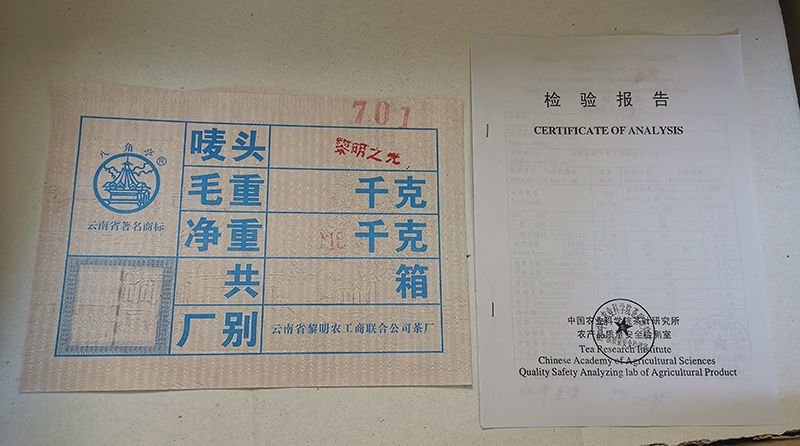 701
八角亭®
云南省著名商标
唛头 黎明之光
毛重 千克
净重 千克
共 箱
厂别 云南省黎明农工商联合公司茶厂
检验报告
CERTIFICATE OF ANALYSIS
中国农业科学院茶叶研究所
农产品质量安全检测室
Tea Research Institute
Chinese Academy of Agricultural Sciences
Quality Safety Analyzing lab of Agricultural Product